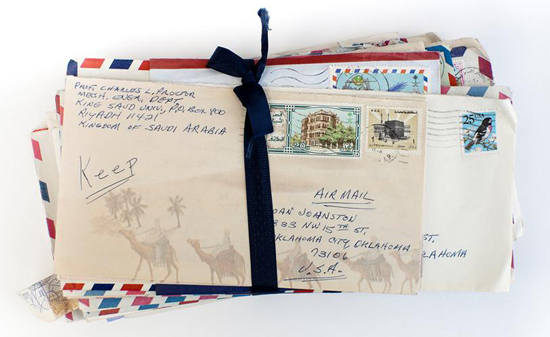 PROF. CHARLES L. PROCTOR
MECH. ENGR. DEPT
KING SAUD UNIV., P.O. BOX 800
RIYADH 11421
KINGDOM OF SAUDI ARABIA
Keep
25
AIR MAIL
OAN JOHNSTON
NW 15TH ST,
KLAHOMA CITY, OKLAHOMA
73106
U.S.A.
ST,
LAHOMA